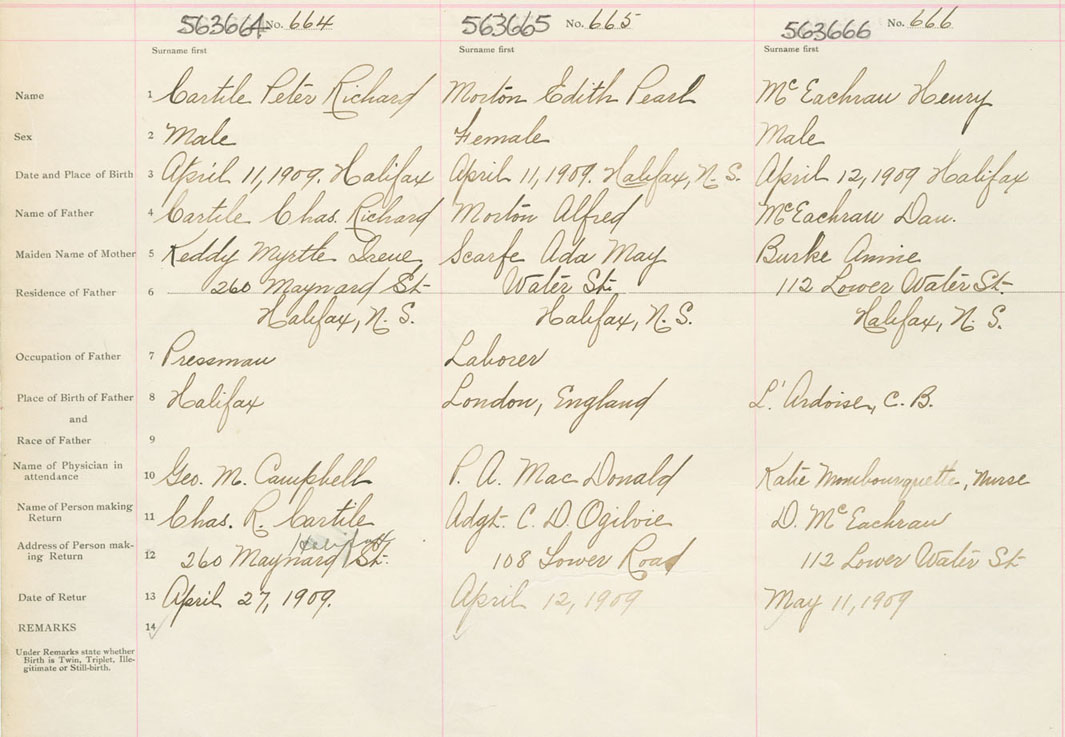 563664 No. 664 563665 No. 665 563666 No. 666
Surname first Surname first Surname first
Name 1 Cartile Peter Richard Morton Edith Pearl McEachrau Henry
Sex 2 Male Female Male
Date and Place of Birth 3 April 11, 1909. Halifax April 11, 1909. Halifax, N.S. April 12, 1909 Halifax
Name of Father 4 Cartile Chas. Richard Morton Alfred McEachrau Dan.
Maiden Name of Mother 5 Keddy Myrtle Irene Scarfe Ada May Burke Annie
Residence of Father 6 260 Maynard St. Water St. 112 Lower Water St.
Halifax, N.S. Halifax, N.S. Halifax, N.S.
Occupation of Father 7 Pressman Laborer
Place of Birth of Father 8 Halifax London, England L'Ardoise, C.B.
and
Race of Father 9
Name of Physician in
attendance 10 Geo. M. Campbell P. A. MacDonald Katie Mombourquette, Nurse
Name of Person making
Return 11 Chas. R. Cartile Adgt. C. D. Ogilvie D. McEachrau
Address of Person mak-
ing Return 12 260 Maynard St. Halifax 108 Lower Road 112 Lower Water St.
Date of Retur 13 April 27, 1909. April 12, 1909 May 11, 1909
REMARKS 14
Under Remarks state whether
Birth is Twin, Triplet, Ille-
gitimate or Still-birth.